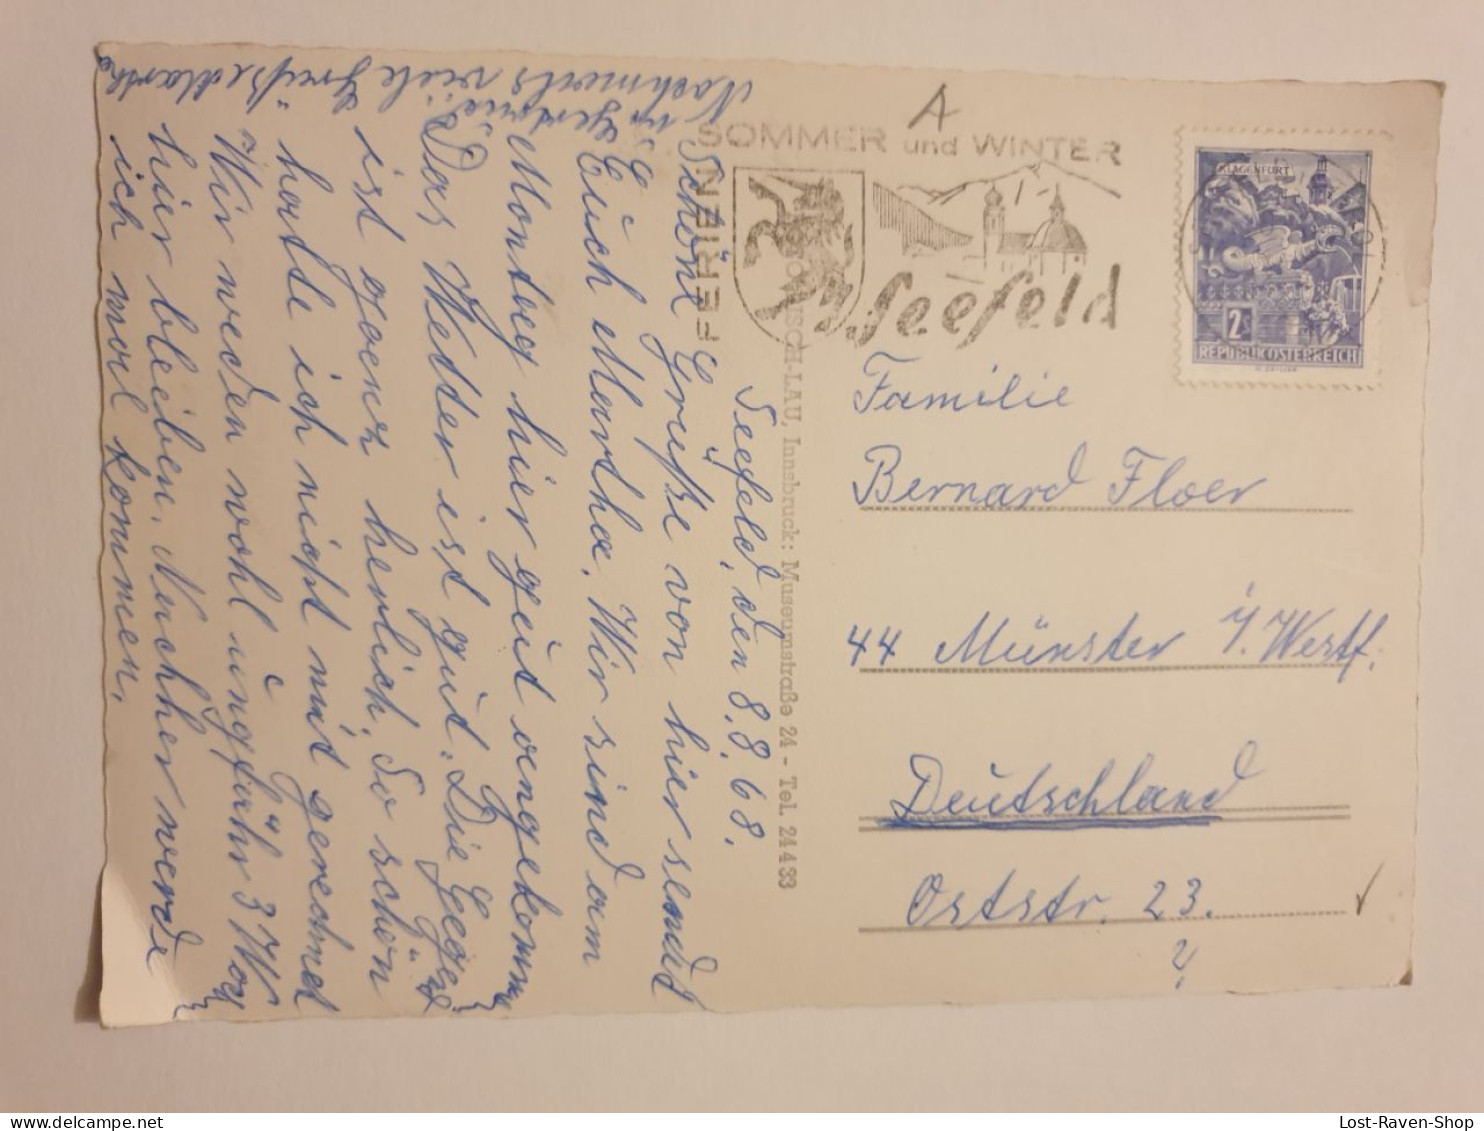 Seefeld, den 8.8.68.
Schöne Grüße von hier sendet
Euch Martha. Wir sind am
Montag hier gut angekomm
Das Wetter ist gut. Die Gegend
ist ganz herlich. So schön
hatte ich nicht mit gerechnet
Wir werden wohl ungefähr 3 Woch
hier bleiben. Nachher werde
ich mal kommen.
Nochmals viele Grüße Martha
u. Gertrud
A
FERIEN
SOMMER und WINTER
Seefeld
KLAGENFURT
2S
REPUBLIK ÖSTERREICH
ISCH-LAU, Innsbruck: Museumstraße 24 - Tel. 24433
Familie
Bernard Floer
44 Münster i/Westf.
Deutschland
Oststr. 23.
Lost-Raven-Shop